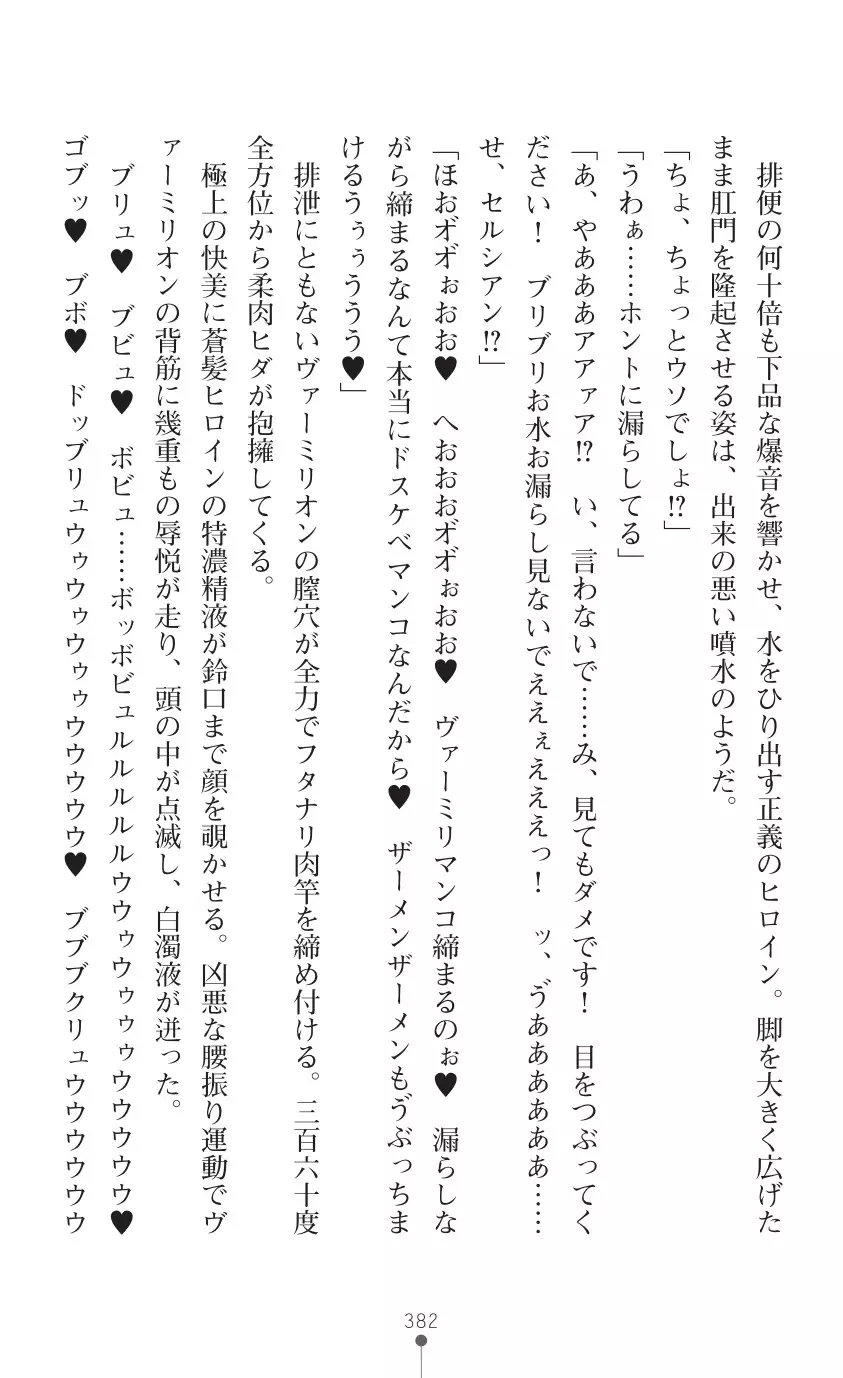 排便の何十倍も下品な爆音を響かせ、水をひり出す正義のヒロイン。脚を大きく広げた
まま肛門を隆起させる姿は、出来の悪い噴水のようだ。
「ちょ、ちょっとウソでしょ!?」
「うわぁ……ホントに漏らしてる」
「あ、やあああアアァア!?　い、言わないで……み、見てもダメです！　目をつぶってく
ださい！　ブリブリお水お漏らし見ないでええぇえええっ！　ッ、ゔああああああ……
せ、セルシアン!?」
「ほおオ゙オ゙ぉおお♥　へおおおオ゙オ゙ぉおお♥　ヴァーミリマンコ締まるのぉ♥　漏らしな
がら締まるなんて本当にドスケベマンコなんだから♥　ザーメンザーメンもゔぶっちま
けるうぅぅううう♥」
排泄にともないヴァーミリオンの膣穴が全力でフタナリ肉竿を締め付ける。三百六十度
全方位から柔肉ヒダが抱擁してくる。
極上の快美に蒼髪ヒロインの特濃精液が鈴口まで顔を覗かせる。凶悪な腰振り運動でヴ
ァーミリオンの背筋に幾重もの辱悦が走り、頭の中が点滅し、白濁液が迸った。
ブリュ♥　ブビュ♥　ボビュ……ボッボビュルルルルルウウゥウゥゥゥウウウウウ♥
ゴブッ♥　ブボ♥　ドッブリュウゥウゥウゥゥウウウウウ♥　ブブブクリュウウウウウウ
382